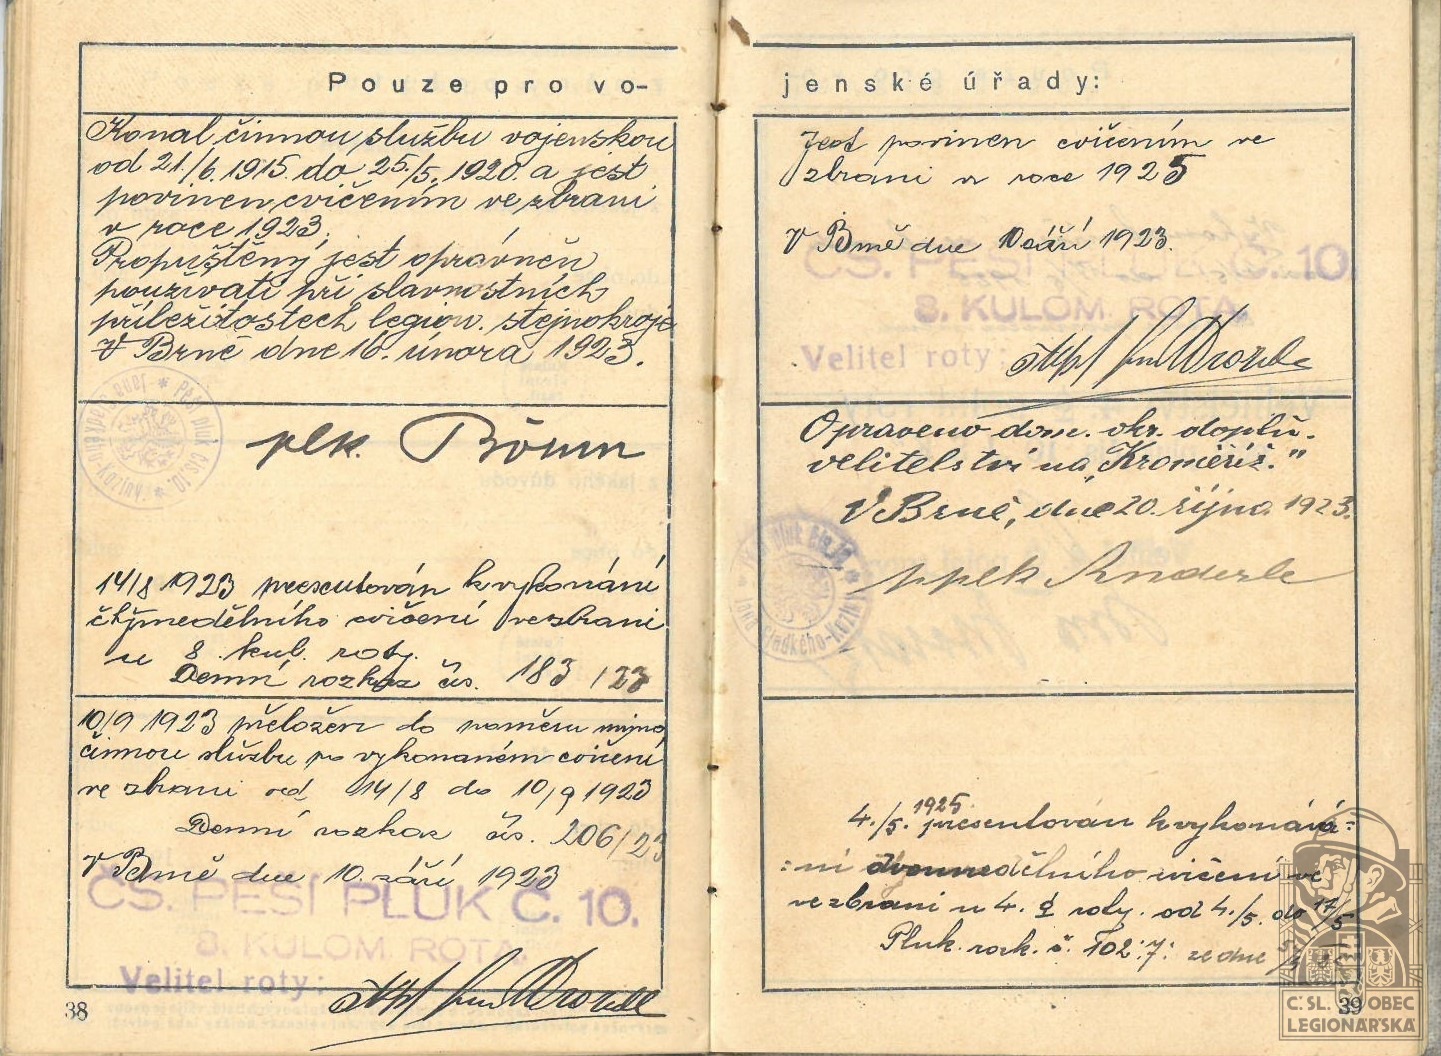 Pouze pro vo-
Konal činnou službu vojenskou
od 21./6. 1915. do 25./5. 1920. a jest
povinen cvičením ve zbrani
v roce 1923.
Propuštěný jest oprávněn
používati při slavnostních
příležitostech legion. stejnokroje
V Brně dne 16. února 1923.
Pěší pluk čís. 10.
plk. Böhm
14/8 1923 presentován k vykonání
čtyřnedělního cvičení ve zbrani
u 8. kul. roty.
Denní rozkaz čís. 183/23
10/9 1923 přeložen do poměru mimo
činnou službu po vykonaném cvičení
ve zbrani od 14/8 do 10/9 1923
Denní rozkaz čís. 206/23
V Brně dne 10. září 1923
ČS. PĚŠÍ PLUK Č. 10.
8. KULOM. ROTA.
Velitel roty:
38
jenské úřady:
Jest povinen cvičením ve
zbrani v roce 1925
V Brně dne 10 září 1923.
ČS. PĚŠÍ PLUK Č. 10.
8. KULOM. ROTA.
Velitel roty:
Opraveno dom. okr. doplň.
velitelství na „Kroměříž."
V Brně, dne 20. října 1923.
Pěší pluk čís. 10
Jana Sladkého-Koziny
pplk Anderle
1925.
4./5. presentován k vykonává=
=ní dvounedělního cvičení ve
ve zbrani u 4. roty. od 4./5. do 17/5
Pluk. rozk. č. 102:7: ze dne
39
Č.SL. OBEC
LEGIONÁŘSKÁ